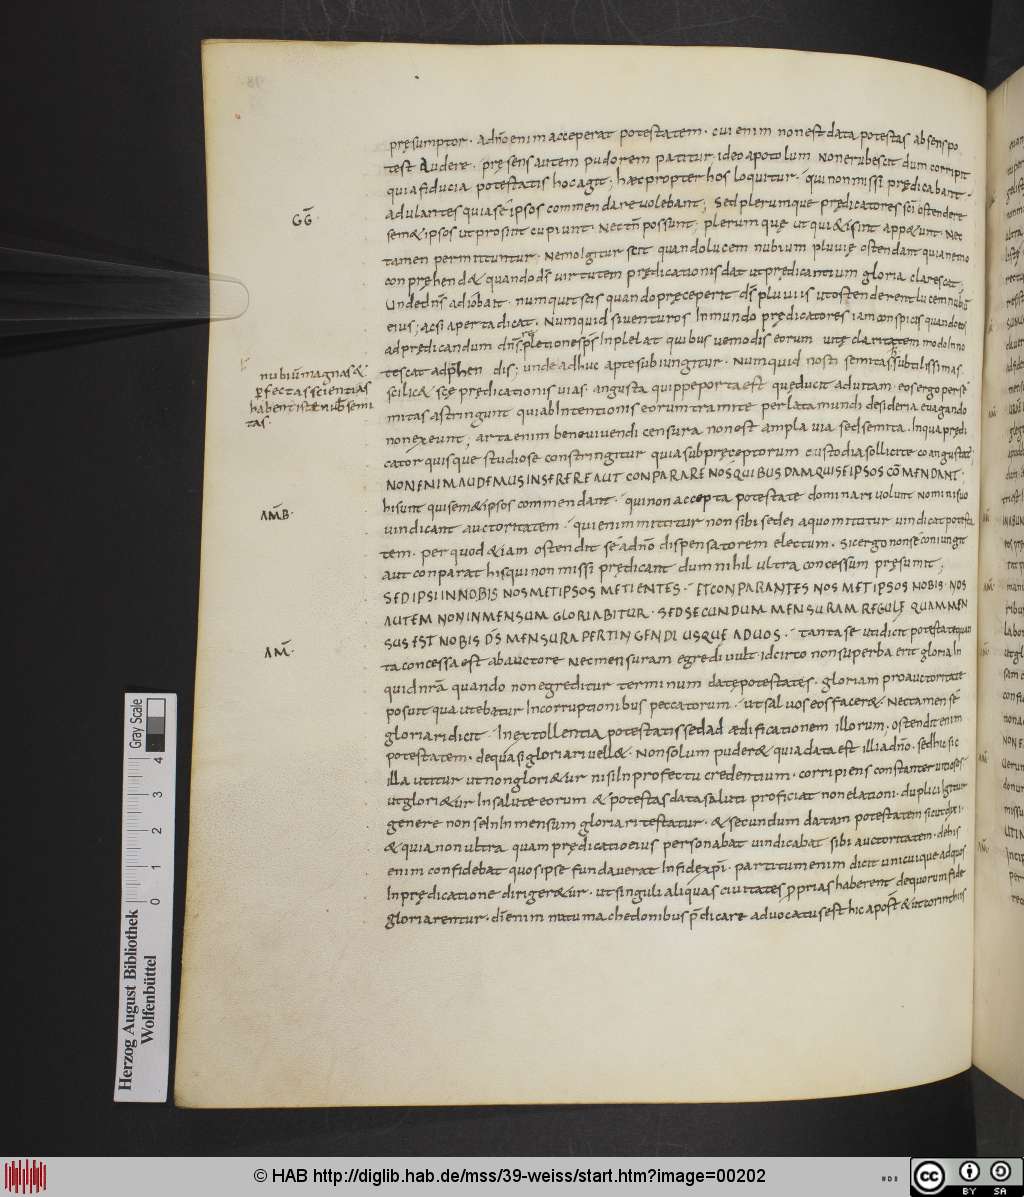 pręsumptor · adnō enim acceperat potestatem · cui enim non est data potestas absens po
test audere · pręsens autem pudorem patitur ideo apostolum non erubescit dum corripit
quia fiducia potestatis hoc agit; haec propter hos loquitur · qui non missi prędicabant ·
adulantes quia se ipsos commendare volebant; Sed plerumque prędicatores sci ostendere
GḠ ·
sem& ipsos ut prosint cupiunt · Nec tn possunt; plerumquę ut qui &isint app&unt · Nec
tamen permittuntur · Nemo Igitur scit quando lucem nubium pluvię ostendant quia nemo
conpręhend& quando ds virtutem prędicationis dat ut prędicantium gloria clarescat;
Unde dns ad iob ait · numquit scis quando pręceperit ds pluviis ut ostenderent lucem nubiū
eius; acsi aperta dicat · Numquid si venturos In mundo prędicatores iam conspicis quando eos
ad prędicandum dns Inpleat quibus ve modis eorum utę claritatem modo Inno
tescat adphen dis; unde adhuc apte subiungitur · Numquid nosti semitas subtilissimas
nubiū magnas &
perfectas scientias
habent istae nubes semi
tas ·
scilic& scę prędicationis vias · angusta quippe porta est quę ducit ad vitam · eos ergo per se
mitas astringunt qui ab Intentionis eorum tramite per lata mundi desideria euagando
non exeunt; arta enim bene vivendi censura non est ampla via sed semita · In qua prędi
cator quisque studiose constringitur quia sub pręceptorum custodia sollicite coangustat;
NON ENIM AUDEMUS INSERERE AUT CONPARARE NOS QUIBUSDAM QUI SE IPSOS COMENDANT ·
AM̄B ·
hi sunt qui sem& ipsos commendant · qui non accepta potestate dominari volunt nomini suo
vindicant auctoritatem · qui enim mittitur non sibi sed ei a quo mittitur vindicat potesta
tem · per quod &iam ostendit se adnō dispensatorem electum · Sic ergo non se coniungit
aut conparat his qui non missi prędicant dum nihil ultra concessum pręsumit;
SED IPSI IN NOBIS NOSMETIPSOS METIENTES · ET CONPARANTES NOSMETIPSOS NOBIS · NOS
AUTEM NON IN MENSUM GLORIABITUR · SED SECUNDUM MENSURAM REGULĘ QUAM MEN
SUS EST NOBIS DS MENSURA PERTINGENDI USQUE AD VOS · tanta se uti dicit potestate quan
AM̄ ·
ta concessa est ab auctore Nec mensuram egredi vult · idcirco non superba erit gloria In
quid nra quando non egreditur terminum datę potestates · gloriam pro auctoritate
posuit qua utebatur In corruptionibus peccatorum · ut salvos eos facer& · Nec tamen se
gloriari dicit · In extollentia potestatis sed ad aedificationem illorum · ostendit enim
potestatem · de qua si gloriari vell& · Non solum puder& quia data est illi adnō · sed hic sic
illa utitur ut non glori&ur nisi In profectu credentium · corripiens constanter vitiosos
ut glori&ur In salute eorum & potestas data saluti proficiat non elationi · duplici Igitur
genere non se In Inmensum gloriari testatur · & secundum datam potestatem
& quia non ultra quam prędicatio eius personabat vindicabat sibi auctoritatem · de his
enim confidebat quos ipse fundaverat In fide xpi · partitum enim dicit unicuique ad quos
In prędicatione diriger&ur · ut singuli aliquas civitates pprias haberent de quorum fide
gloriarentur · dīenim nutu machedonibus pdicare advocatus est hic apost & ut corinthiis
Herzog August Bibliothek
Wolfenbüttel
0 1 2 3 4
Gray Scale
© HAB http://diglib.hab.de/mss/39-weiss/start.htm?image=00202
cc BY SA